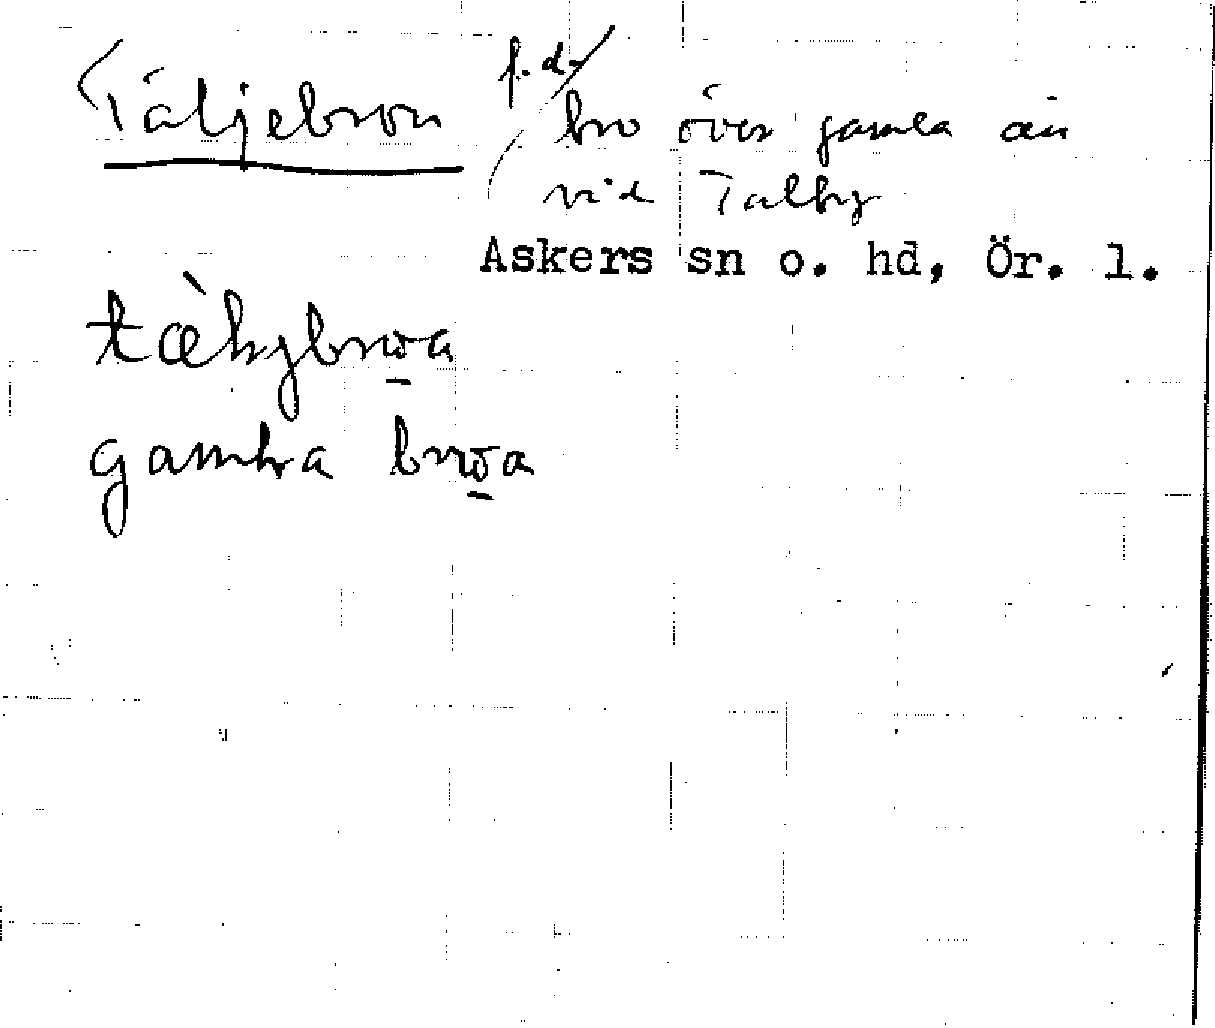 Täljebron f.d.
bro över gamla ån
vid Talby
Askers sn o. hd, Ör. l.
gamla